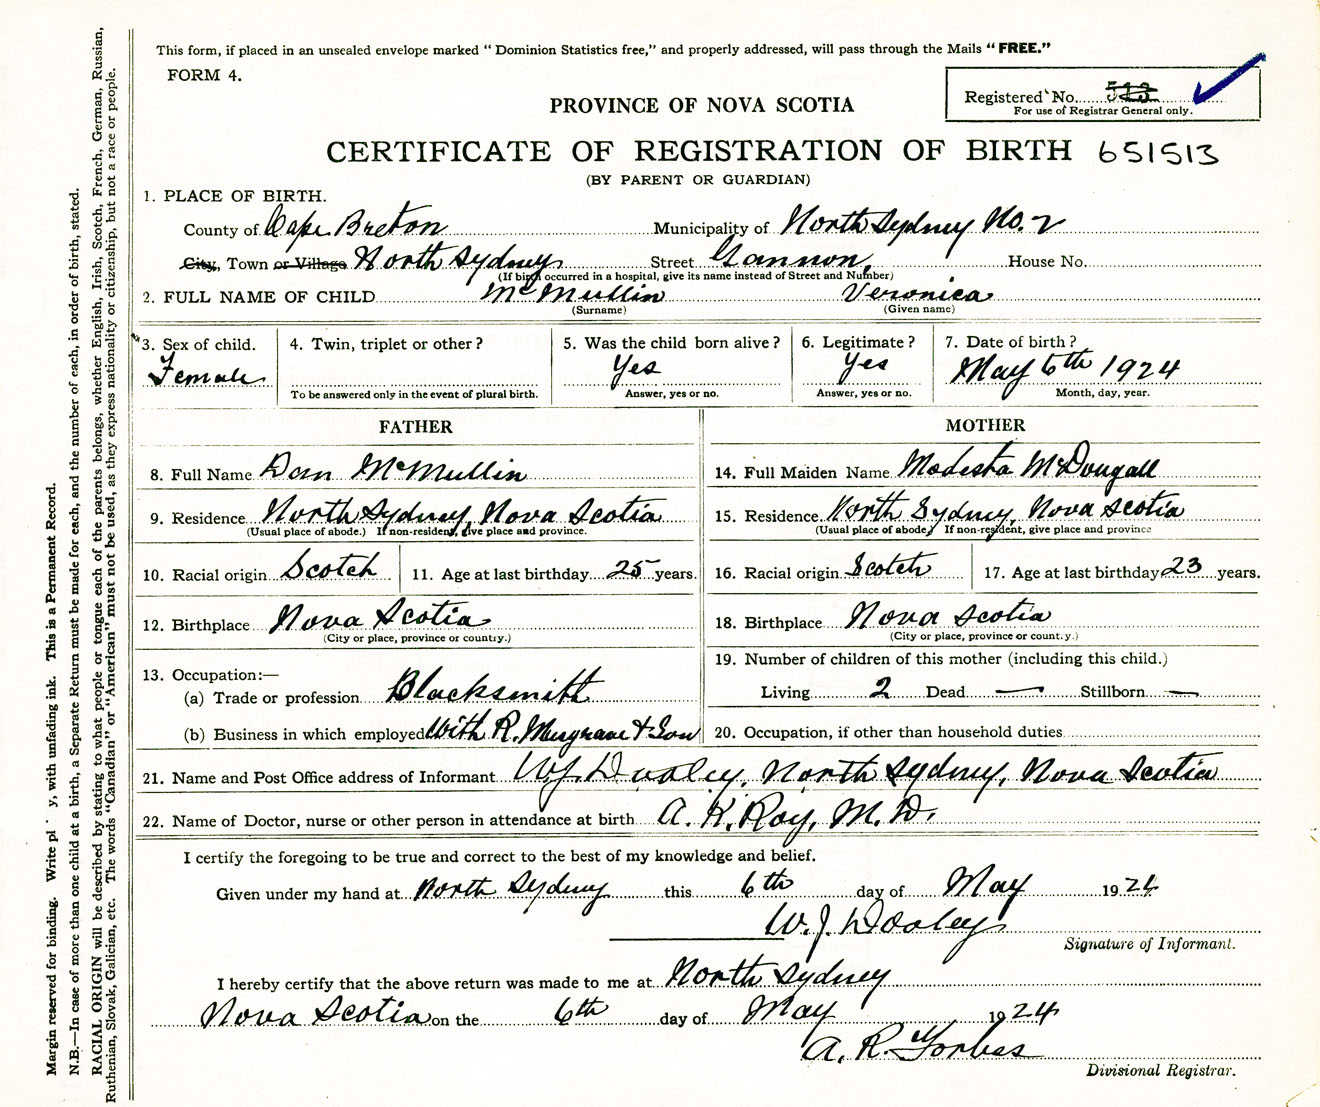 This form, if placed in an unsealed envelope marked " Dominion Statistics free," and properly addressed, will pass through the Mails " FREE."
FORM 4.
Registered No. 513
For use of Registrar General only.
PROVINCE OF NOVA SCOTIA
CERTIFICATE OF REGISTRATION OF BIRTH 651513
(BY PARENT OR GUARDIAN)
1. PLACE OF BIRTH.
County of Cape Breton Municipality of North Sydney No. 2
City, Town or Village North Sydney Street Gannon, House No.
(If birth occurred in a hospital, give its name instead of Street and Number)
2. FULL NAME OF CHILD McMullin Veronica
(Surname) (Given name)
3. Sex of child. 4. Twin, triplet or other? 5. Was the child born alive? 6. Legitimate? 7. Date of birth?
Female Yes Yes May 6th 1924
To be answered only in the event of plural birth. Answer, yes or no. Answer, yes or no. Month, day, year.
FATHER MOTHER
8. Full Name Dan McMullin 14. Full Maiden Name Modesta McDougall
9. Residence North Sydney, Nova Scotia 15. Residence North Sydney, Nova Scotia
(Usual place of abode.) If non-resident, give place and province. (Usual place of abode) If non-resident, give place and province
10. Racial origin Scotch 11. Age at last birthday 25 years. 16. Racial origin Scotch 17. Age at last birthday 23 years.
12. Birthplace Nova Scotia 18. Birthplace Nova Scotia
(City or place, province or country.) (City or place, province or country.)
13. Occupation:— 19. Number of children of this mother (including this child.)
(a) Trade or profession Blacksmith Living 2 Dead — Stillborn —
(b) Business in which employed With R. Musgrave & Son 20. Occupation, if other than household duties
21. Name and Post Office address of Informant W.J. Dooley, North Sydney, Nova Scotia
22. Name of Doctor, nurse or other person in attendance at birth A. K. Roy, M. D.
I certify the foregoing to be true and correct to the best of my knowledge and belief.
Given under my hand at North Sydney this 6th day of May 1924
W. J. Dooley
Signature of Informant.
I hereby certify that the above return was made to me at North Sydney
Nova Scotia on the 6th day of May 1924
A. R. Forbes
Divisional Registrar.
Margin reserved for binding. Write y, with unfading ink. This is a Permanent Record.
N.B.—In case of more than one child at a birth, a Separate Return must be made for each, and the number of each, in order of birth, stated.
RACIAL ORIGIN will be described by stating to what people or tongue each of the parents belongs, whether English, Irish, Scotch, French, German, Russian,
Ruthenian, Slovak, Galician, etc. The words "Canadian" or "American" must not be used, as they express nationality or citizenship, but not a race or people.